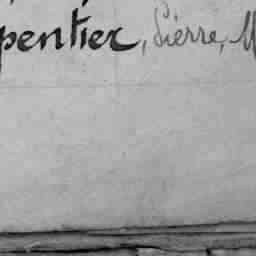 pentier, Pierre, M